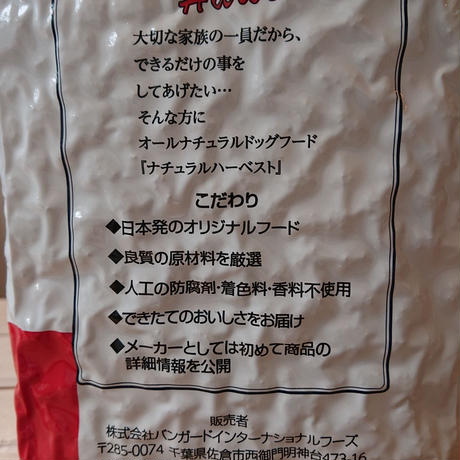 大切な家族の一員だから、
できるだけの事を
してあげたい…
そんな方に
オールナチュラルドッグフード
『ナチュラルハーベスト』
こだわり
◆日本発のオリジナルフード
◆良質の原材料を厳選
◆人工の防腐剤・着色料・香料不使用
◆できたてのおいしさをお届け
◆メーカーとしては初めて商品の
詳細情報を公開
販売者
株式会社バンガードインターナショナルフーズ
〒285-0074 千葉県佐倉市西御門明神台473-16